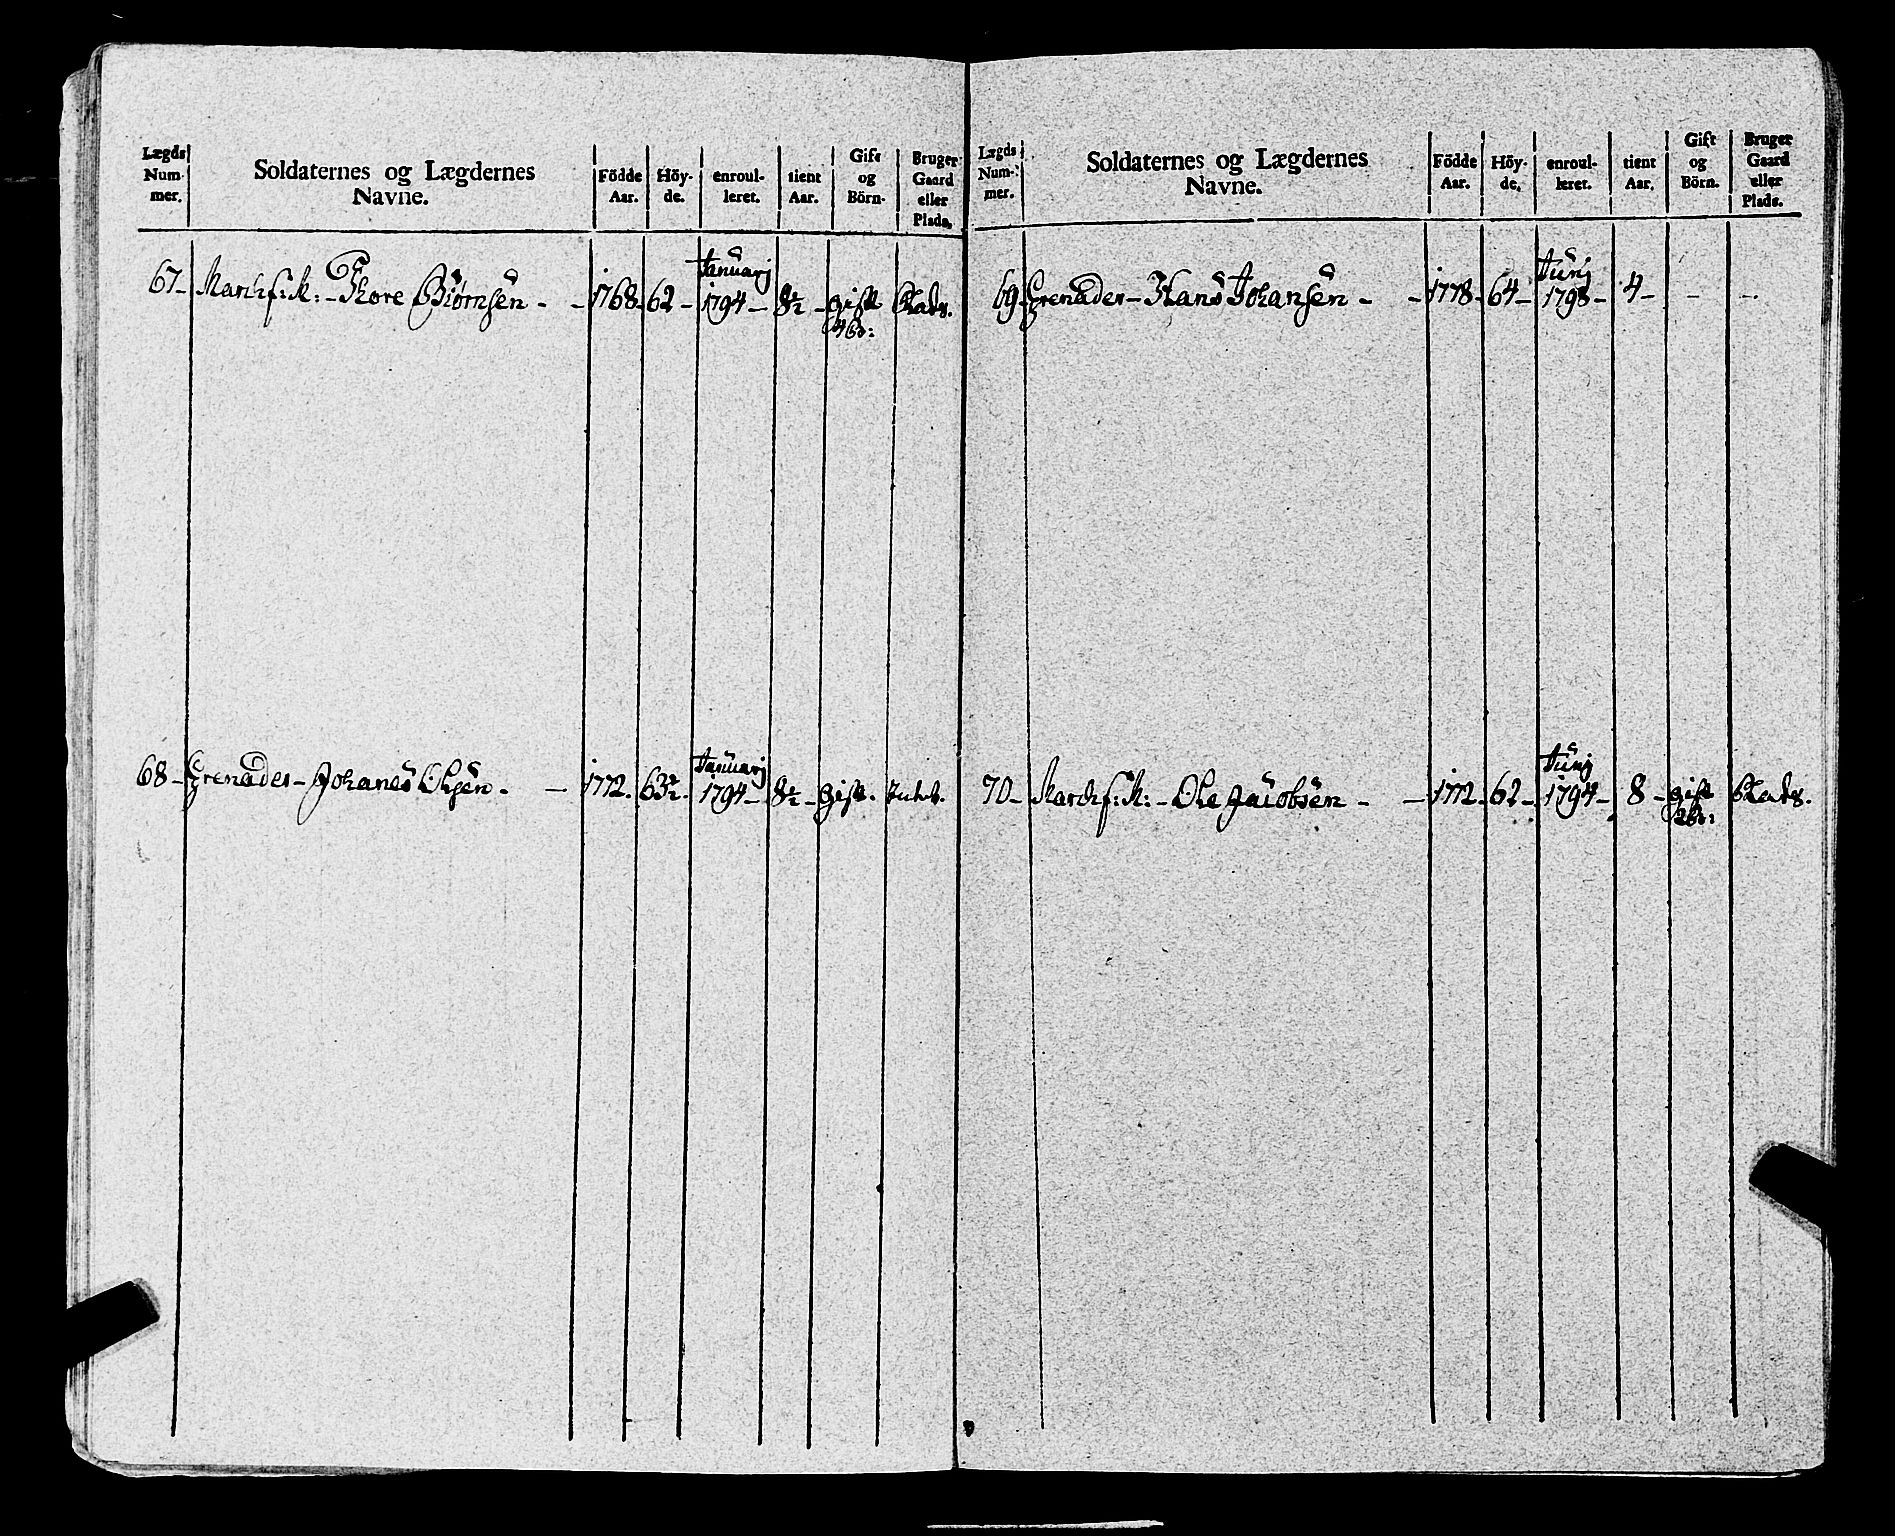 Lægds Num- mer. Soldaternes og Lægdernes Navne. Födde Aar. Höy- de. enroul- leret. tient Aar. Gift og Börn. Bruger Gaard eller Plads.
67 – Markf: K: – Thore Biørnsen – – 1768 – 62 – Januarj 1794 – 8½ – gift Plads.
4 b:
68 – Grenader – Johanes Olsen – – 1772. 63½. Januarj 1794 – 8½ – gift.
Lægds Num- mer. Soldaternes og Lægdernes Navne. Födde Aar. Höy- de. enroul- leret. tient Aar. Gift og Börn. Bruger Gaard eller Plads.
69 Grenader – Hans Johansen – – 1778 – 64 – Junj 1798 – 4 – – –
70 – Markf: K: – Ole Jacobsen – – 1772 – 62 – Junj 1794 – 8 – gift Plads.
2 b: